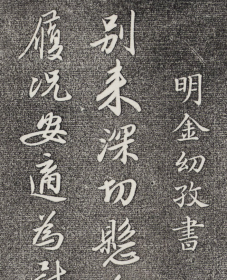 明金幼孜書
別来深切懸
履況安適為